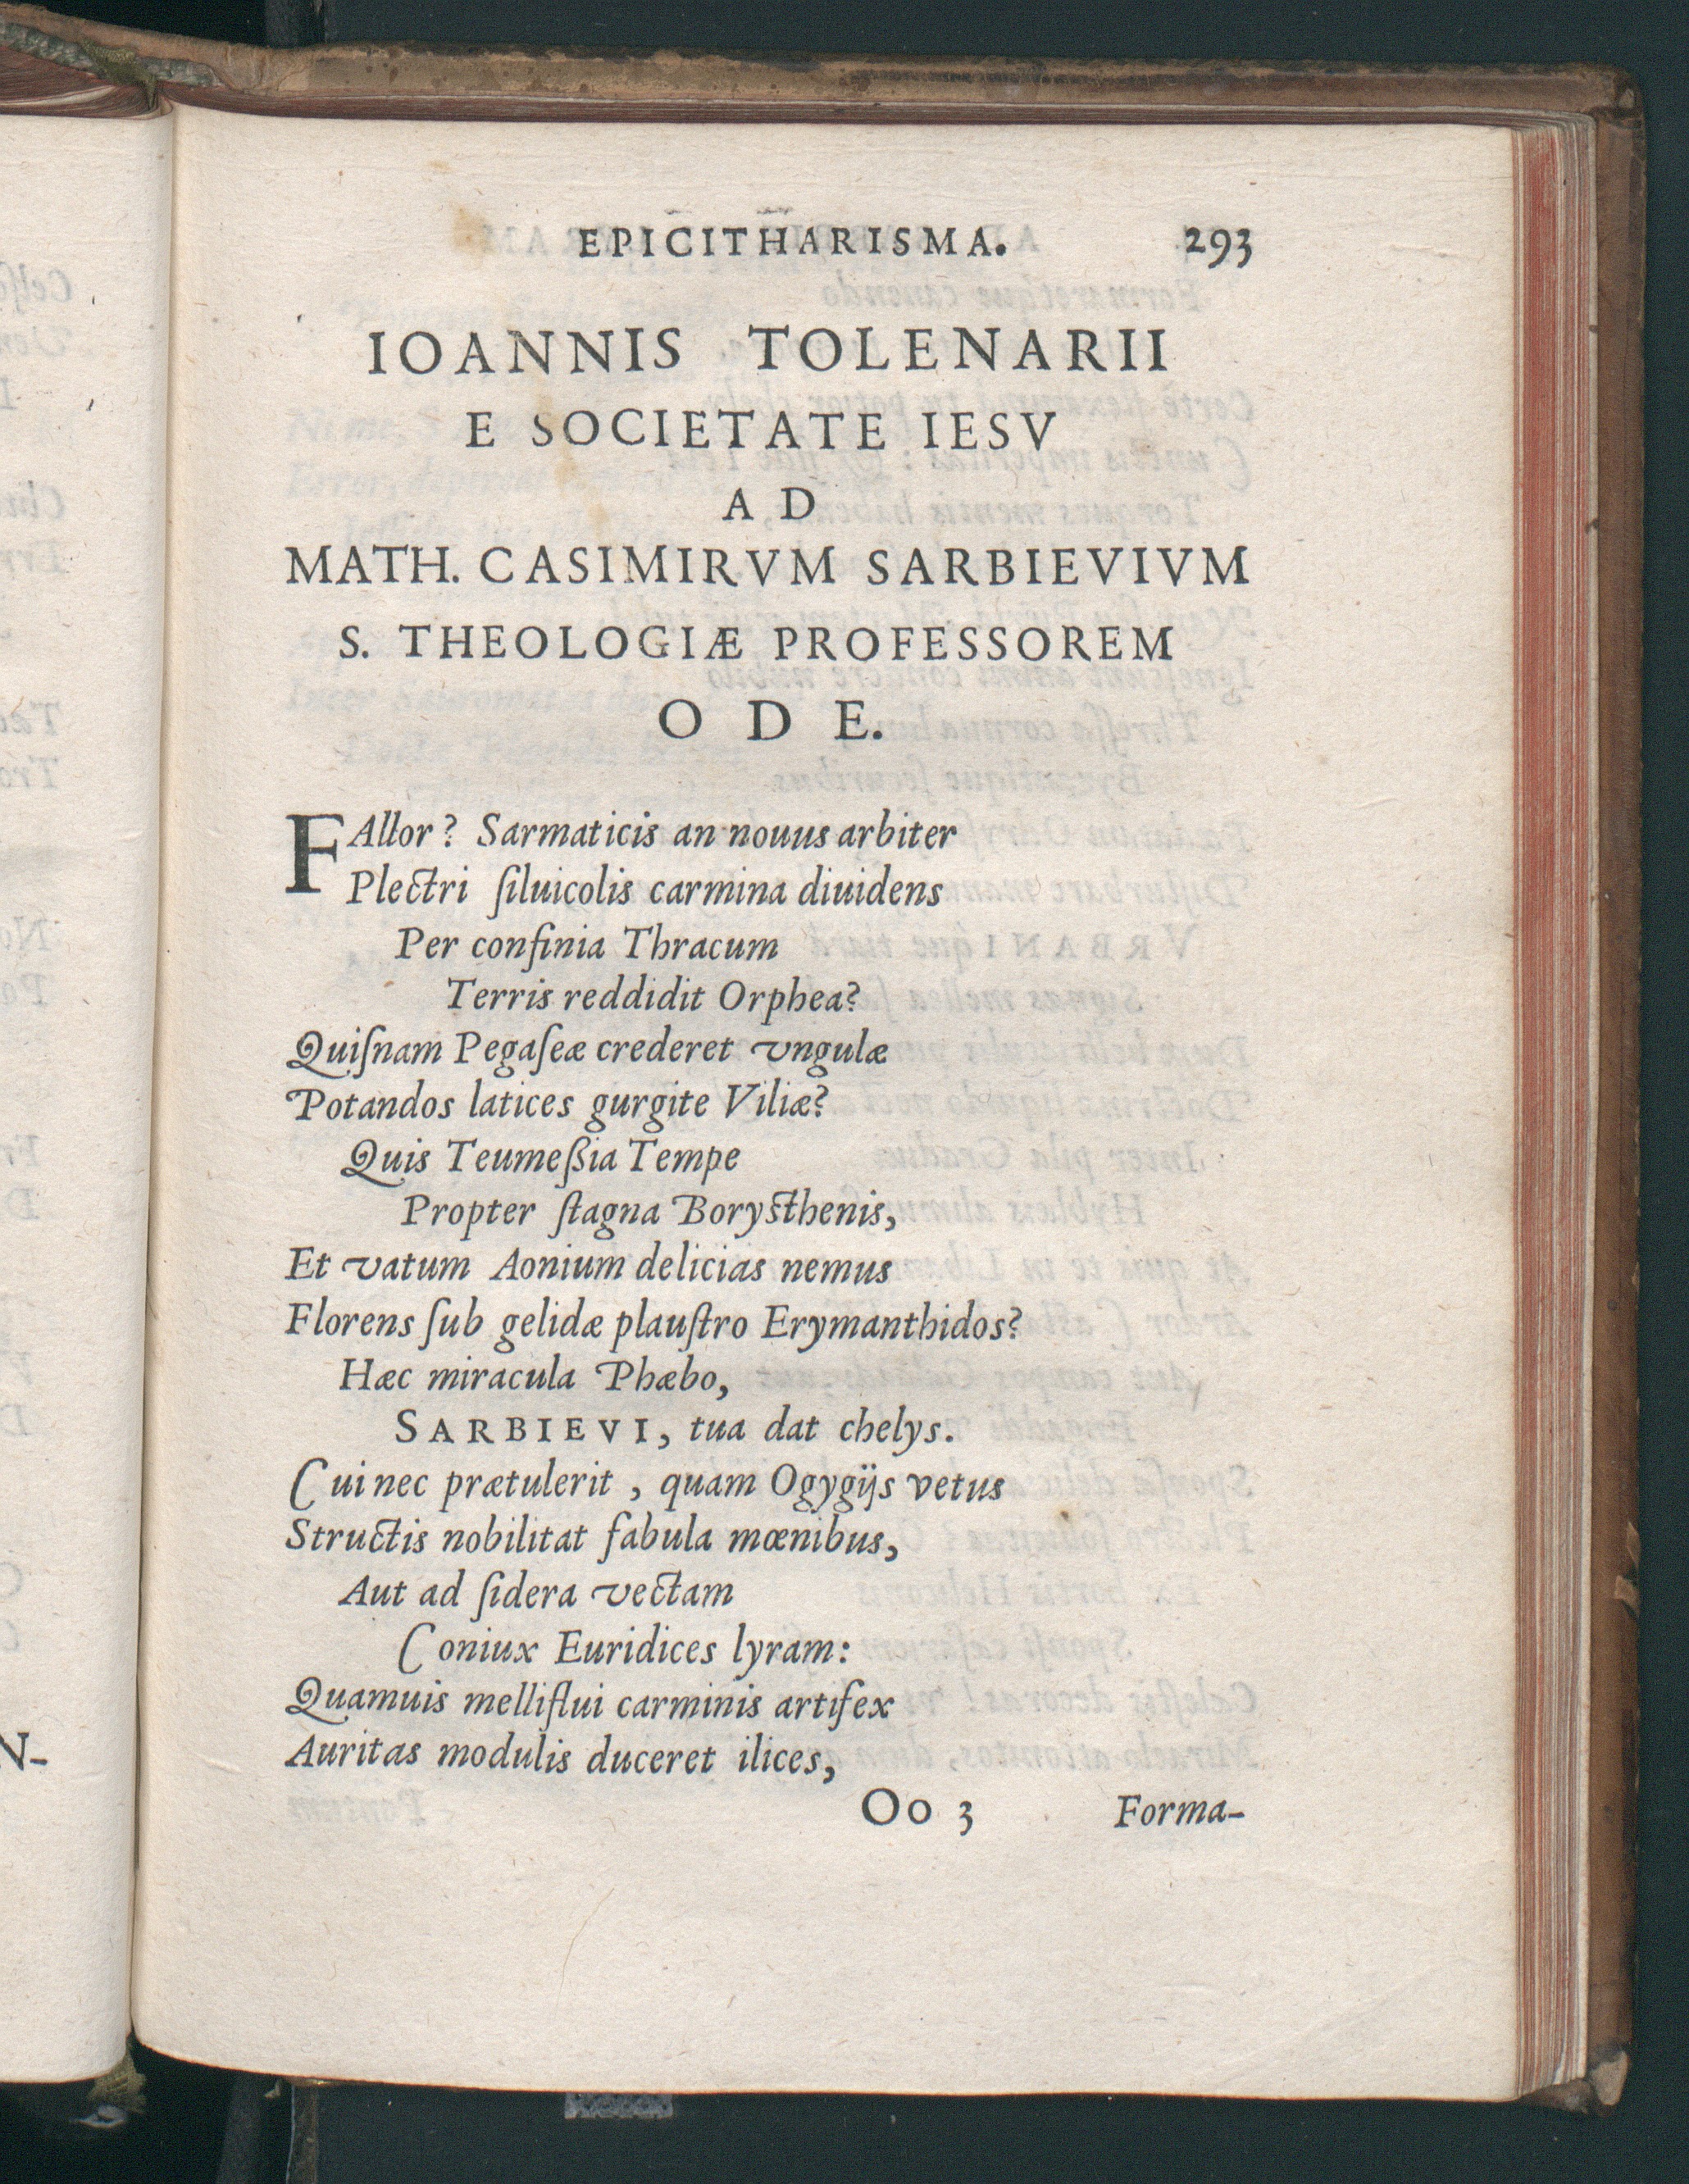 EPICITHARISMA. 293
IOANNIS TOLENARII
E SOCIETATE IESV
AD
MATH. CASIMIRVM SARBIEVIVM
S. THEOLOGIÆ PROFESSOREM
ODE.
FAllor? Sarmaticis an nouus arbiter
Plectri ſiluicolis carmina diuidens
Per confinia Thracum
Terris reddidit Orphea?
Quiſnam Pegaſeæ crederet vngulæ
Potandos latices gurgite Viliæ?
Quis Teumeßia Tempe
Propter ſtagna Borysthenis,
Et vatum Aonium delicias nemus
Florens ſub gelidæ plauſtro Erymanthidos?
Hæc miracula Phæbo,
SARBIEVI, tua dat chelys.
Cui nec prætulerit, quam Ogygijs vetus
Structis nobilitat fabula mœnibus,
Aut ad ſidera vectam
Coniux Euridices lyram:
Quamuis melliflui carminis artifex
Auritas modulis duceret ilices,
Oo 3 Forma-
N-